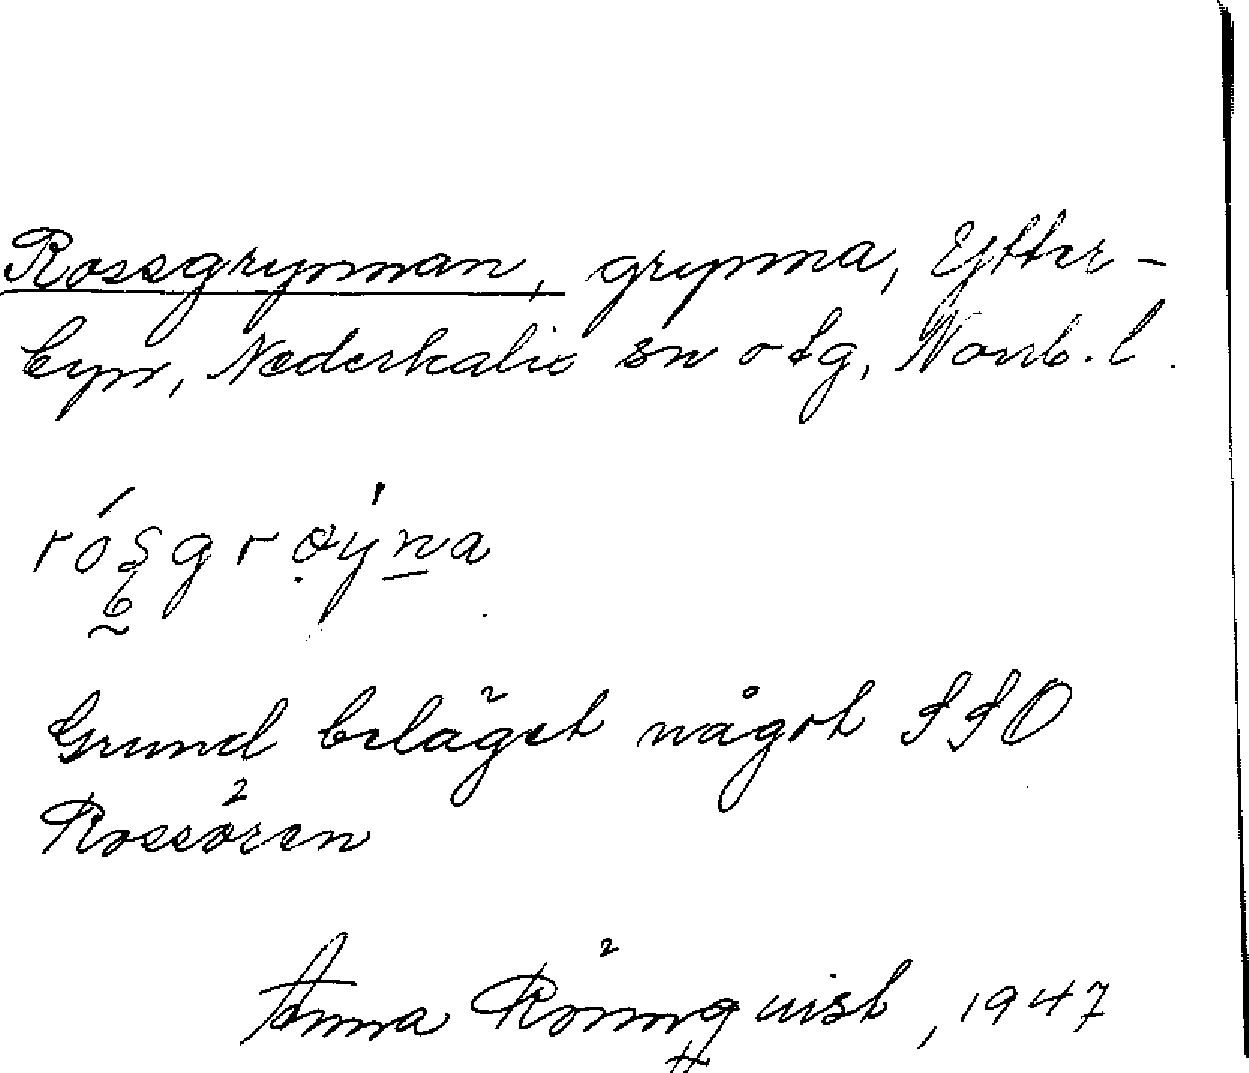 Rossgrynnan, grynna, Ytter-
byn, Nederkalix sn o tg, Norrb. l.
Grund beläget något SSO
Rossören
Anna Rönnqvist, 1947